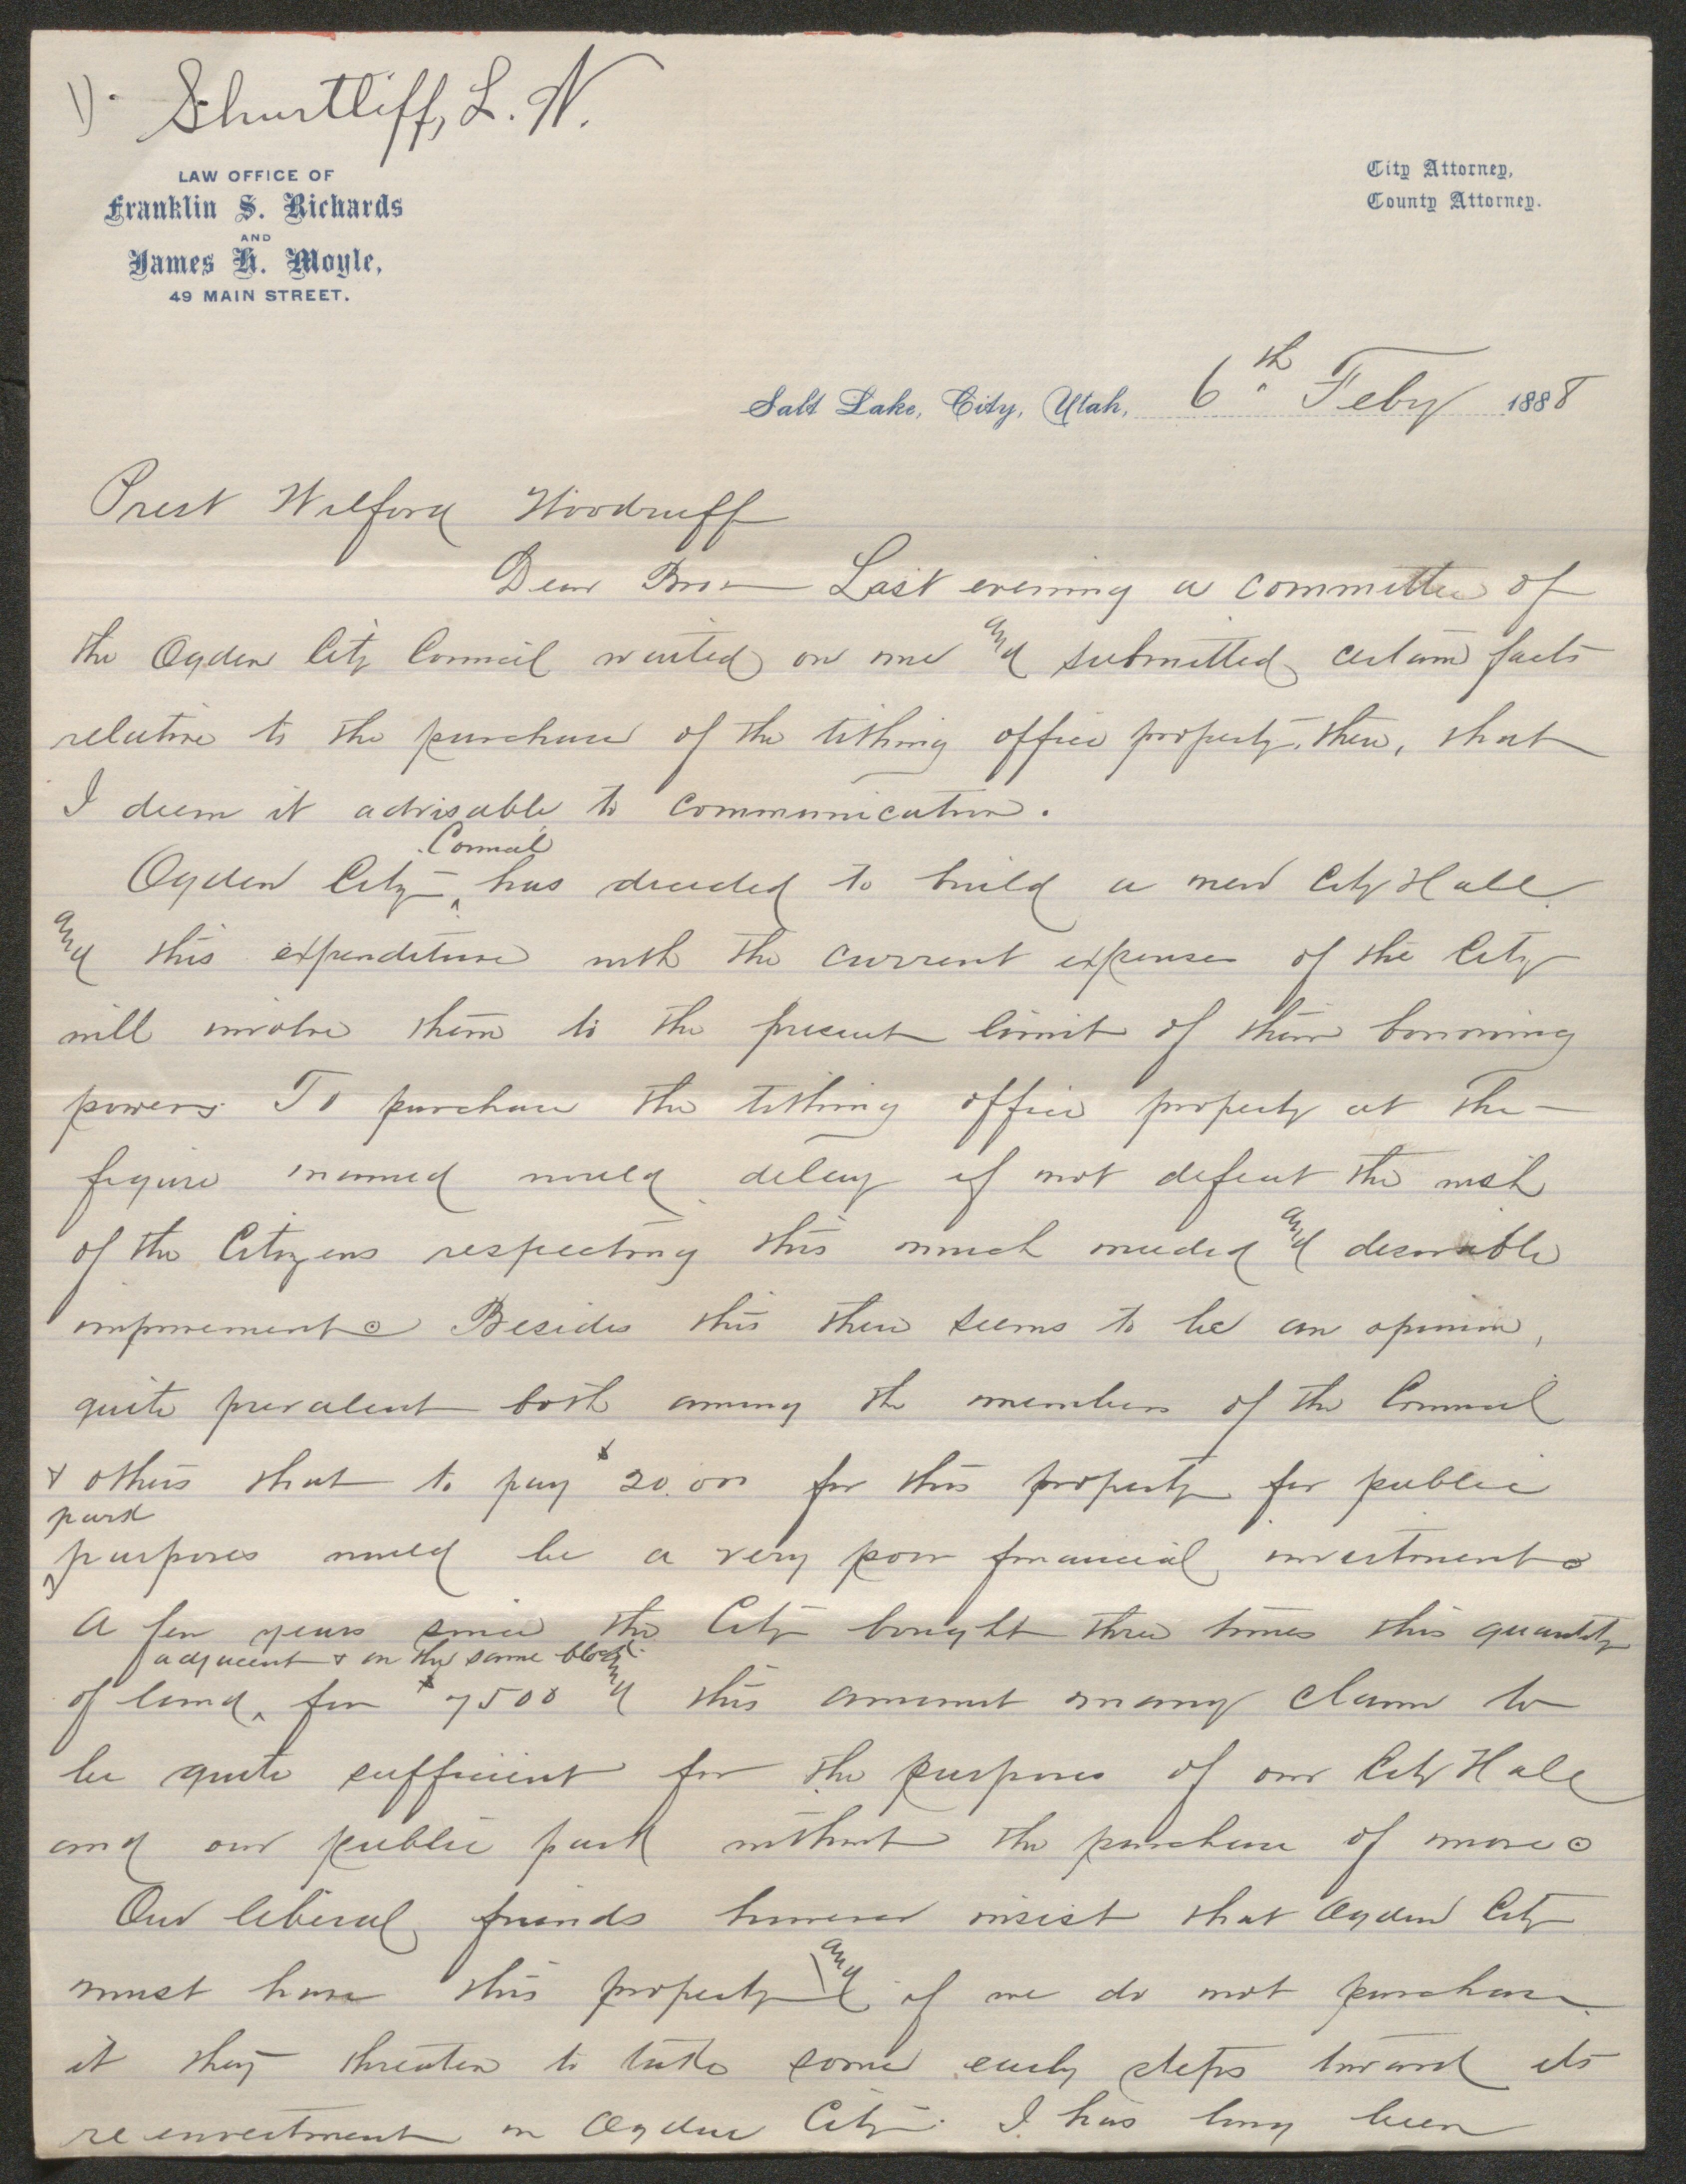 Shurtliff, L. W.
LAW OFFICE OF
Franklin S. Richards
AND
James H. Moyle,
49 MAIN STREET.
City Attorney,
County Attorney.
Salt Lake, City, Utah, 6th Feby 1888
Prest Wilford Woodruff
Dear Bro — Last evening a committee of
the Ogden City Council waited on me and submitted certain facts
relative to the purchase of the tithing office property, there, that
I deem it advisable to communication.
Council
Ogden City ^ has decided to build a new City Hall
and this expenditure with the current expenses of the City
will involve them to the present limit of their borrowing
powers. To purchase the tithing office property at the —
figure named would delay if not defeat the wish
of the Citizens respecting this much needed and desirable
improvement. Besides this there seems to be an opinion,
quite prevalent both among the members of the Council
& others that to pay $20.000 for this property for public
park
purposes would be a very poor financial investment.
A few years since the City bought three times this quantity
adjacent & on the same block
of land ^ for $7500 and this amount many claim to
be quite sufficient for the purposes of our City Hall
and our public park without the purchase of more.
Our liberal friends however insist that Ogden City
must have this property and if we do not purchase
it they threaten to take some early steps toward its
reinvestment in Ogden City. I has long been